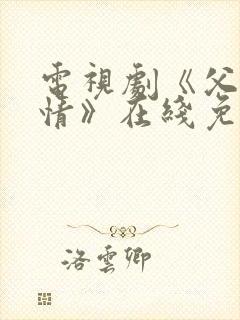 電視劇《父
情》在綫免
洛雲卿